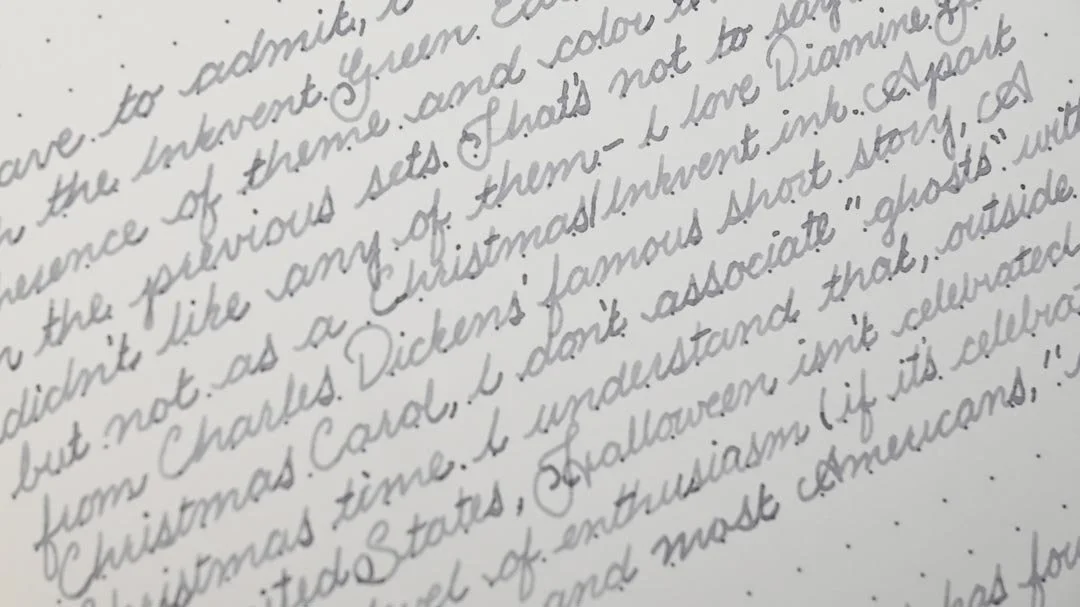 to admit,
the Inkvent Green
of theme and color
the previous sets. That's not to say
didn't like any of them - I love Diamine
but not as a Christmas/Inkvent ink. Apart
from Charles Dickens' famous short story, A
Christmas Carol, I don't associate "ghosts" with
Christmas time. I understand that, outside
States, Halloween, isn't celebrated
of enthusiasm (if it's
and most Americans,"
has